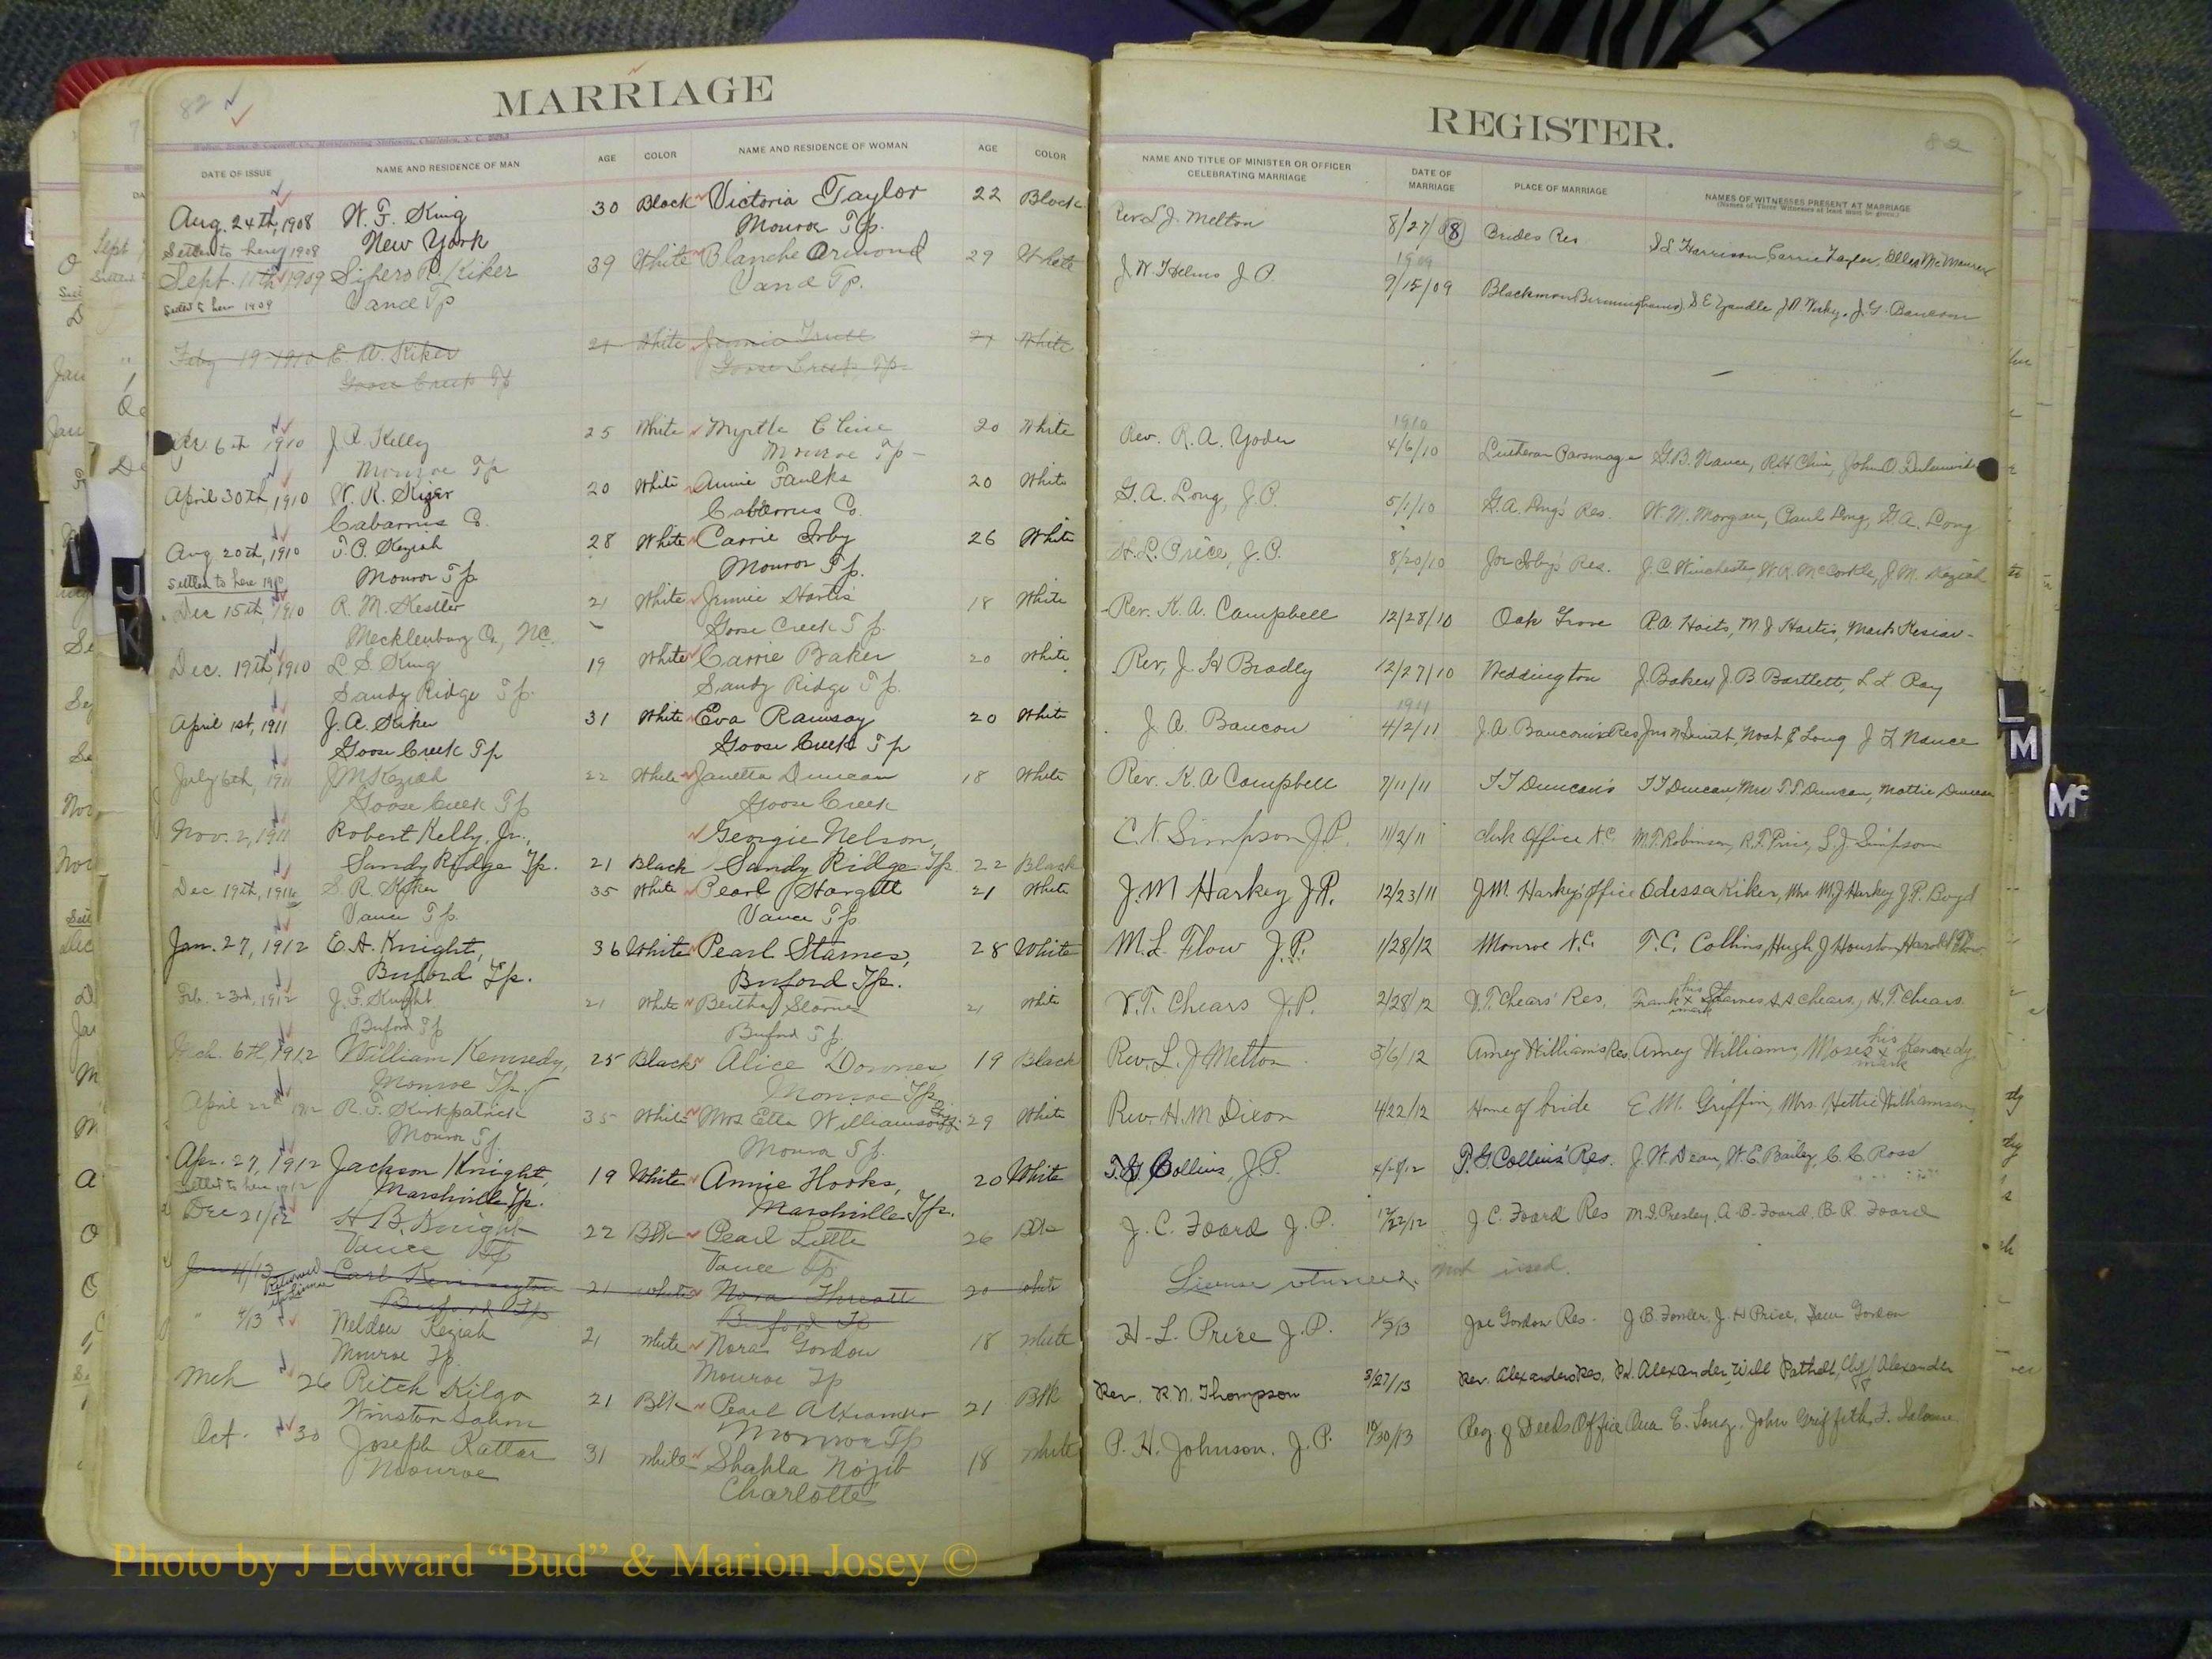 82
MARRIAGE
DATE OF ISSUE NAME AND RESIDENCE OF MAN AGE COLOR NAME AND RESIDENCE OF WOMAN AGE COLOR
Aug. 24th, 1908 W. F. King 30 Black Victoria Taylor 22 Black
Settled to here 1908 New York Monroe Tp.
Sept. 11th 1909 R. Kiker 39 White Blanche Ormond 29 White
Settled to here 1909 Vance Tp Vance Tp.
Feby 19 1910 E. A. Kiker 21 White Jennie 21 White
Goose Creek Tp Goose Creek Tp.
Apr 6th 1910 J. R. Kelly 25 White Myrtle Cline 20 White
Monroe Tp Monroe Tp
April 30th, 1910 W. R. Kizer 20 White Annie Faulks 20 White
Cabarrus Co. Cabarrus Co.
Aug 20th, 1910 T. P. Keziah 28 White Carrie Irby 26 White
Settled to here 1910 Monroe Tp Monroe Tp.
Dec 15th, 1910 R. M. Kestler 21 White Jennie Hartis 18 White
Mecklenburg Co., NC. Goose Creek Tp.
Dec. 19th, 1910 L. S. King 19 White Carrie Baker 20 White
Sandy Ridge Tp. Sandy Ridge Tp.
April 1st, 1911 J. A. Kiker 31 White Eva Ramsay 20 White
Goose Creek Tp Goose Creek Tp
July 6th, 1911 J M Keziah 22 White Janetta Duncan 18 White
Goose Creek Tp. Goose Creek
Nov. 2, 1911 Robert Kelly, Jr., Georgie Nelson,
Sandy Ridge Tp. 21 Black Sandy Ridge Tp. 22 Black
Dec 19th, 1911 S. R. Kiker 35 White Pearl Stargott 21 White
Vance Tp. Vance Tp
Jan. 27, 1912 E. A. Knight, 36 White Pearl Starnes, 28 White
Buford Tp. Buford Tp.
Feb. 23rd, 1912 J. F. Knight 21 White Bertha Starnes 21 White
Buford Tp Buford Tp.
Mch. 6th, 1912 William Kennedy, 25 Black Alice Downes 19 Black
Monroe Tp. Monroe Tp
April 22nd 1912 R. F. Kirkpatrick 35 White Mrs Etta Williamson 29 White
Monroe Tp. Monroe Tp.
Apr. 27, 1912 Jackson Knight, 19 White Annie Hooks, 20 White
Settled to here 1912 Marshville Tp. Marshville Tp.
Dec 21/12 H B. Knight 22 Blk Pearl Little 26 Blk
Vance Tp Vance Tp.
Jan 4/13 Returned Carl Kennington 21 white Nora Threatt 20 white
License Buford Tp Buford Tp
" 4/13 Weldon Keziah 21 white Nora Gordon 18 white
Monroe Tp. Monroe Tp
Mch 26 Ritch Kilgo 21 Blk Pearl Alexander 21 Blk
Winston Salem Monroe Tp
Oct. 30 Joseph Kattar 31 white Shahla Nojib 18 white
Monroe Charlotte
REGISTER.
82
NAME AND TITLE OF MINISTER OR OFFICER CELEBRATING MARRIAGE DATE OF MARRIAGE PLACE OF MARRIAGE NAMES OF WITNESSES PRESENT AT MARRIAGE
(Names of Three Witnesses at least must be given.)
Rev L J. Melton 8/27/08 Brides Res Harrison, Carrie Taylor, Ellen
1909
J. W. Helms J. P. 9/15/09 Blackmon S E Yandle J. G. Baucom
1910
Rev. R. A. Yoder 4/6/10 Lutheran Parsonage G. B. Nance, R H Cline, John O.
G. A. Long, J. P. 5/1/10 G. A. Long's Res. W. M. Morgan, Paul Long, G. A. Long
H. L. Price, J. P. 8/20/10 Joe Irby's Res. J. C. Winchester, W. R. McCorkle, J. M. Keziah
Rev. K. A. Campbell 12/28/10 Oak Grove M. J. Hartis,
Rev, J. H Bradly 12/27/10 Weddington J. Baker, J. B Bartlett, L L Ray
1911
J. A. Baucom 4/2/11 J. A. Baucom's Res Smith, Long J F Nance
Rev. K. A Campbell 7/11/11 T F Duncan's T F Duncan, Mrs T. F. Duncan, Mattie Duncan
C. N. Simpson J. P. 11/2/11 clerk office N. C. M. T. Robinson, R. F. Price, S. J. Simpson
J. M Harkey J. P. 12/23/11 J. M. Harkey's office Odessa Kiker, Mrs M. J Harkey J. P. Boyd
M. L. Flow J. P. 1/28/12 Monroe N. C. T. C. Collins, Hugh J Houston, Harold Flow
V. T. Chears J. P. 2/28/12 V. T Chears' Res. Frank his x mark Starnes, Chears, H. T. Chears
Rev. L. J. Melton 3/6/12 Amey William's Res. Amey Williams, Moses his x mark Kennedy
Rev. H. M Dixon 4/22/12 Home of bride E. M. Griffin, Mrs. Hettie Williamson,
T. G. Collins, J. P. 4/28/12 T. G. Collins' Res. J. W. Dean, W. E. Bailey, C. C. Ross
J. C. Foard J. P. 12/22/12 J. C. Foard Res M. J. Presley, A. B. Foard, B. R. Foard
License returned. not used.
H. L. Price J. P. 1/5/13 Joe Gordon Res. J. B. Fowler, J. H Price, Gordon
Rev. R. N. Thompson 3/27/13 Rev. Alexanders Res. Alexander, Will Clyf Alexander
P. H. Johnson. J. P. 10/30/13 Reg. of Deeds Office E. Long, John Griffith, F. Salome
J
K
L
M
Mc
Photo by J Edward “Bud” & Marion Josey ©